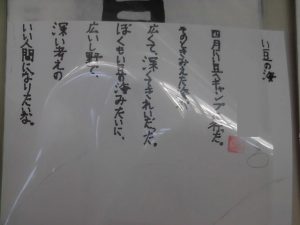 い豆の海
四月い豆にキャンプに行った。
そのときみえた海、
広くて深くてきれいだった。
ぼくもい豆の海みたいに、
広いし野で、
深い考えの
いい人間になりたいな。